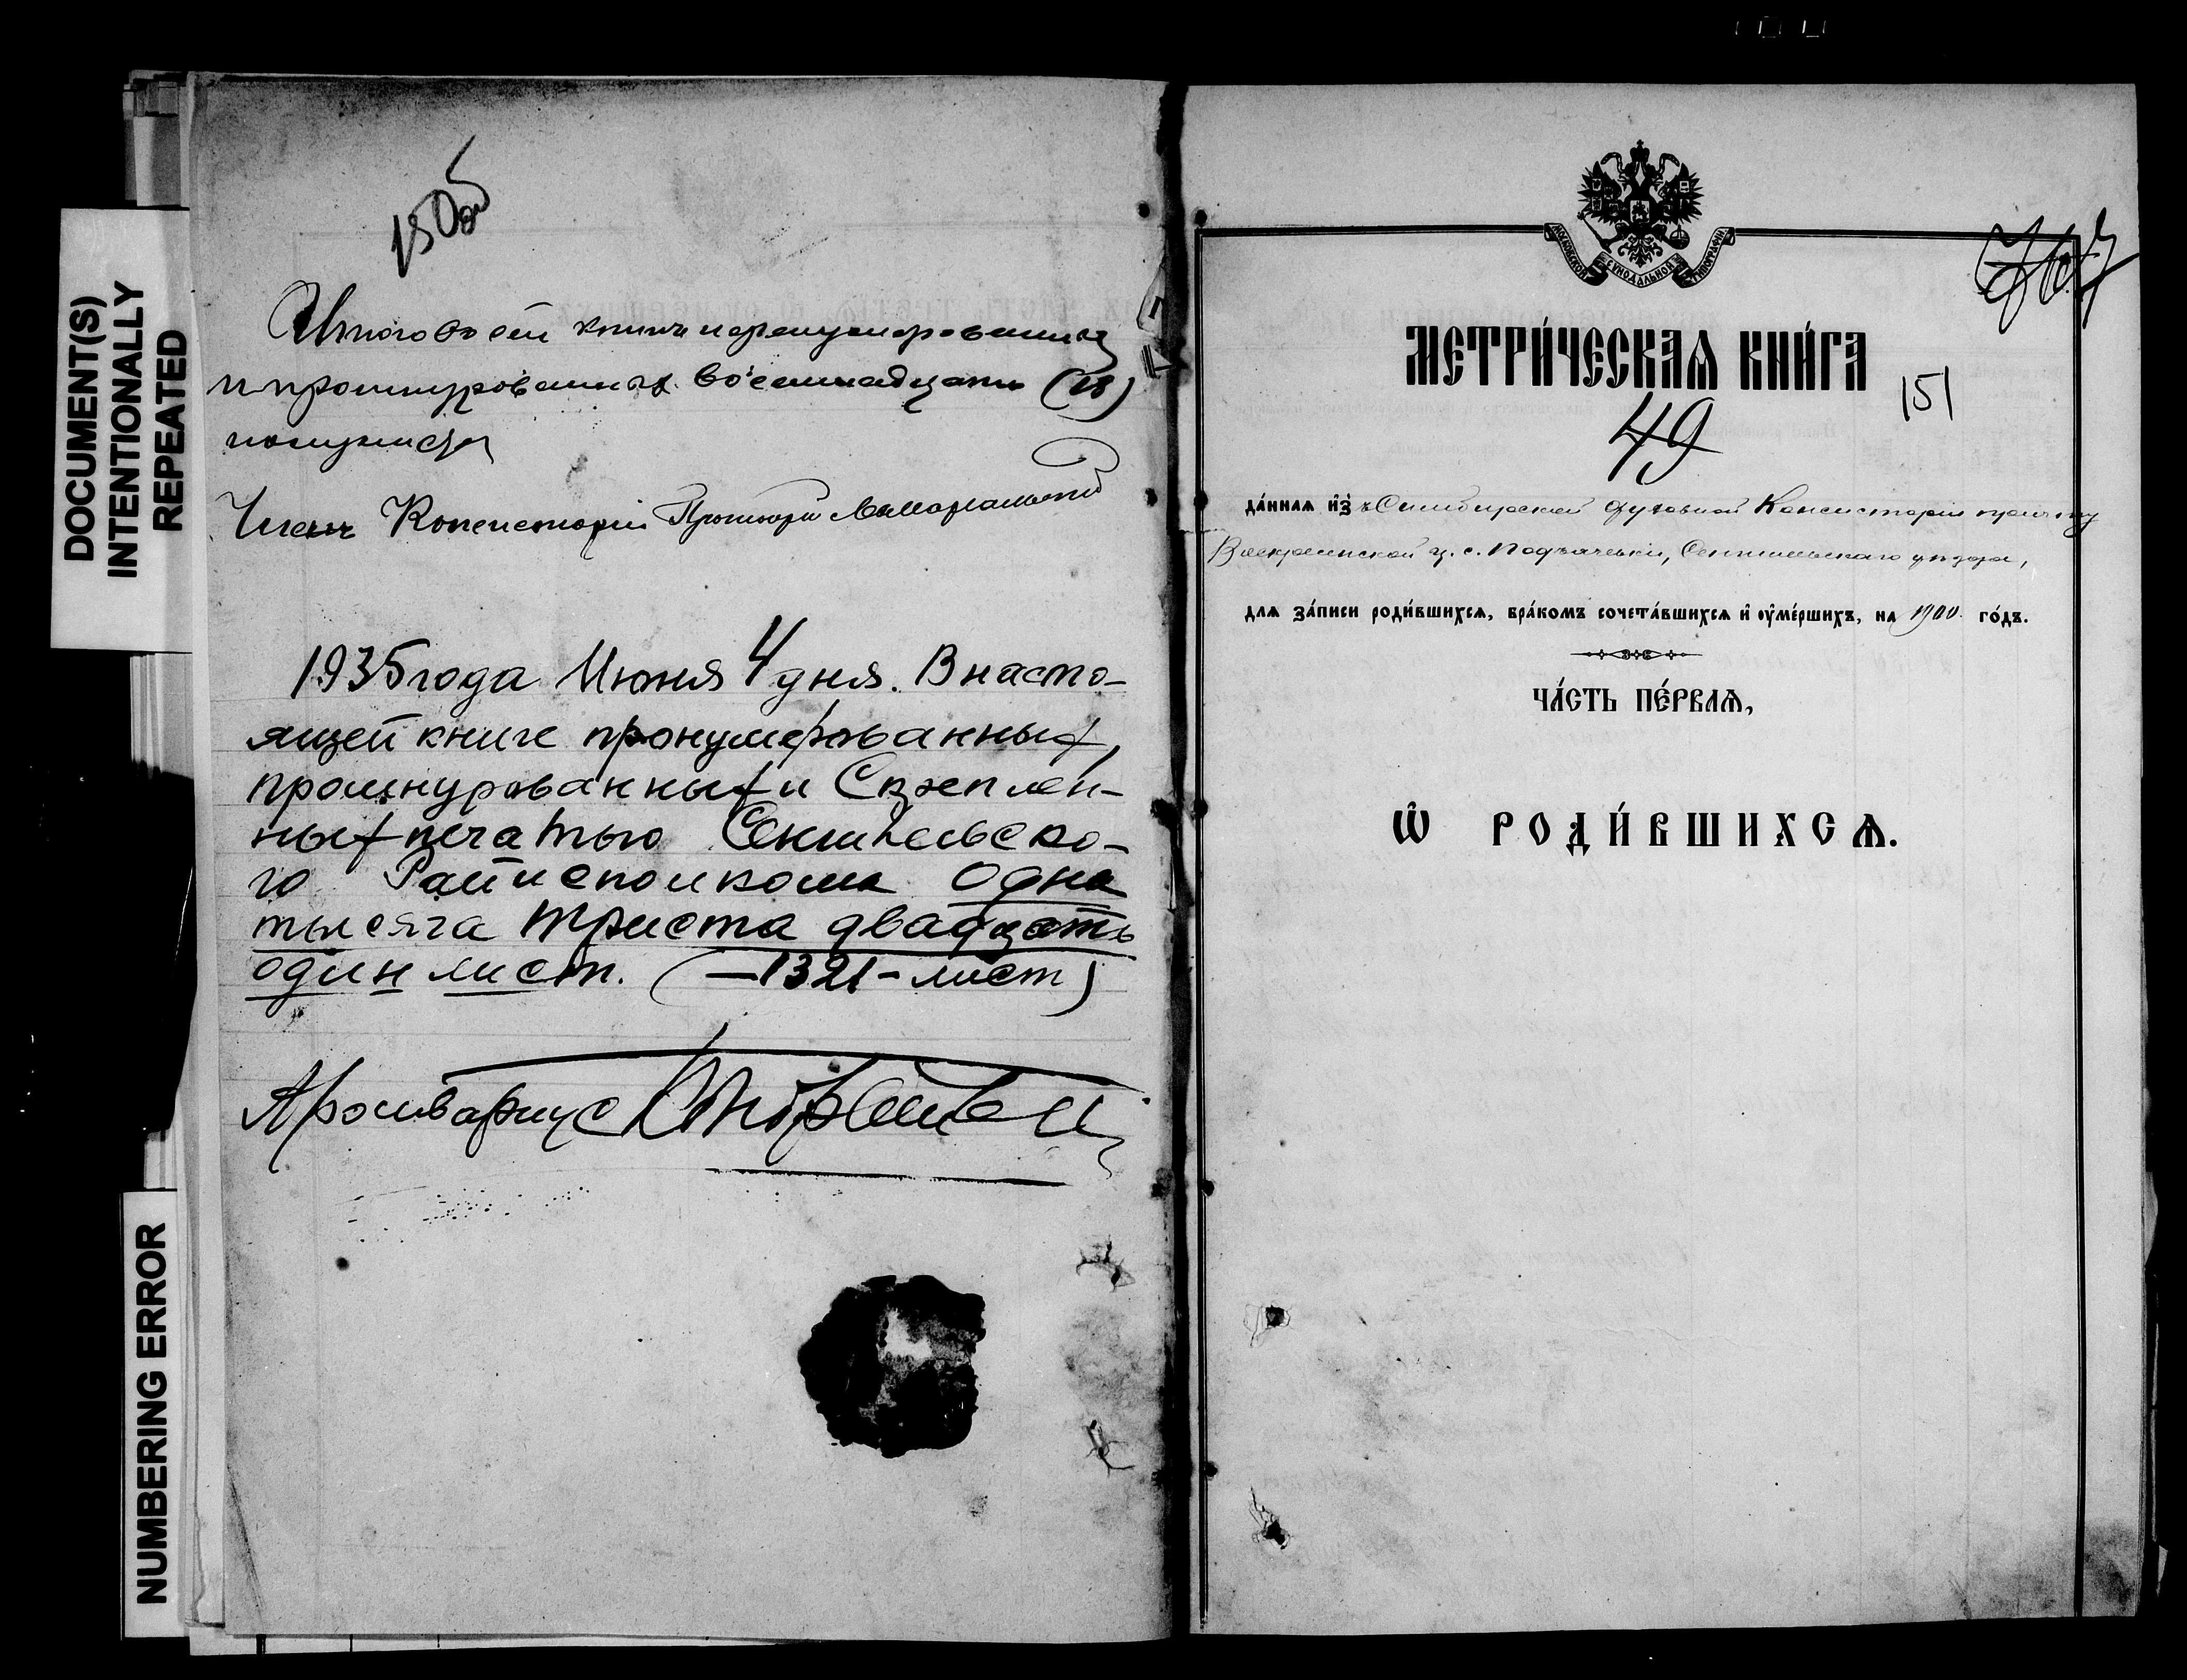 DOCUMENT(S)
INTENTIONALLY
REPEATED
NUMBERING ERROR
150об
Итого въ сей книгѣ перенумерованныхъ
и прошнурованныхъ восемнадцать (18)
полулистовъ
Членъ Консисторіи Протоіерей
1935 года Июня 4 дня. В насто-
ящей книге пронумерованных,
прошнурованных и Скреплен-
ных печатью Сенгилеевско-
го Райисполкома одна
тысяча триста двадцать
один лист. (-1321- лист)
Архивариус
МОСКОВСКОЙ СѴНОДАЛЬНОЙ ТИПОГРАФІИ
МЕТРИ́ЧЕСКАѦ КНИ́ГА
151
49
да́ннаѧ и҆з̾ Симбирской Духовной Консисторіи причту
Воскресенской ц. с. Подвачевки, Сенгилеевскаго уѣзда,
для за́писи роди́вшихсѧ, бра́комъ сочета́вшихсѧ и҆ ᲂу҆ме́ршихъ, на 1900 го́дъ.
ЧА́СТЬ ПЕ́РВАѦ,
Ѡ҆ РОДИ́ВШИХСѦ.